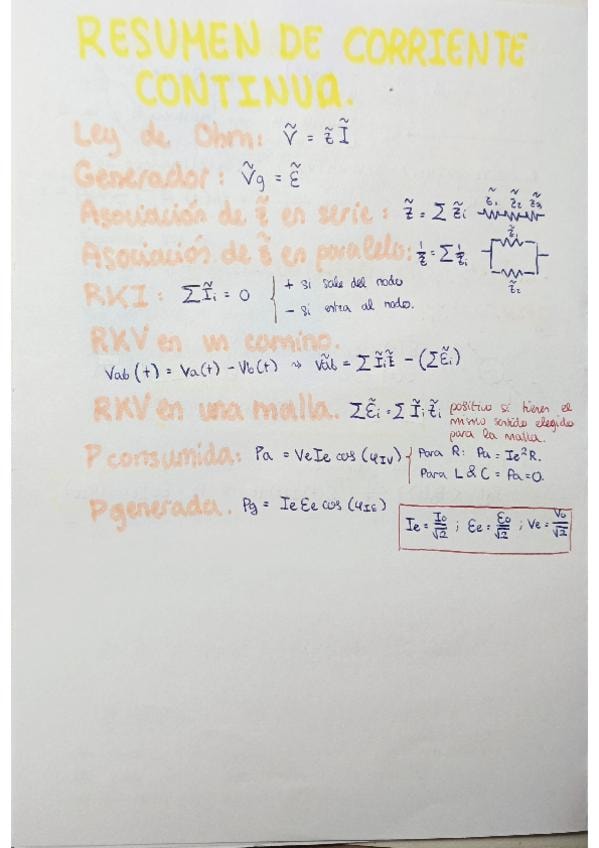 RESUMEN DE CORRIENTE
CONTINUA.
Ley de Ohm: Ṽ = z̃ Ĩ
Generador: Ṽg = Ɛ̃
Asociación de z̃ en serie: z̃ = Σ z̃i z̃1 z̃2 z̃3
Asociación de z̃ en paralelo: 1/z̃ = Σ 1/z̃i z̃1 z̃2
RKI: Σ Ĩi = 0 { + si sale del nodo
- si entra al nodo.
RKV en un camino.
Vab(t) = Va(t) - Vb(t) ⇝ ṽab = Σ Ĩi z̃ - (Σ Ɛ̃i)
RKV en una malla. Σ Ɛ̃i = Σ Ĩi z̃i positivo si tienen el
mismo sentido elegido
para la malla.
P consumida: Pa = Ve Ie cos (φIV) { Para R: Pa = Ie² R.
Para L & C = Pa = 0.
P generada. Pg = Ie Ɛe cos (φIƐ)
Ie = I0/√2 ; Ɛe = Ɛ0/√2 ; Ve = V0/√2